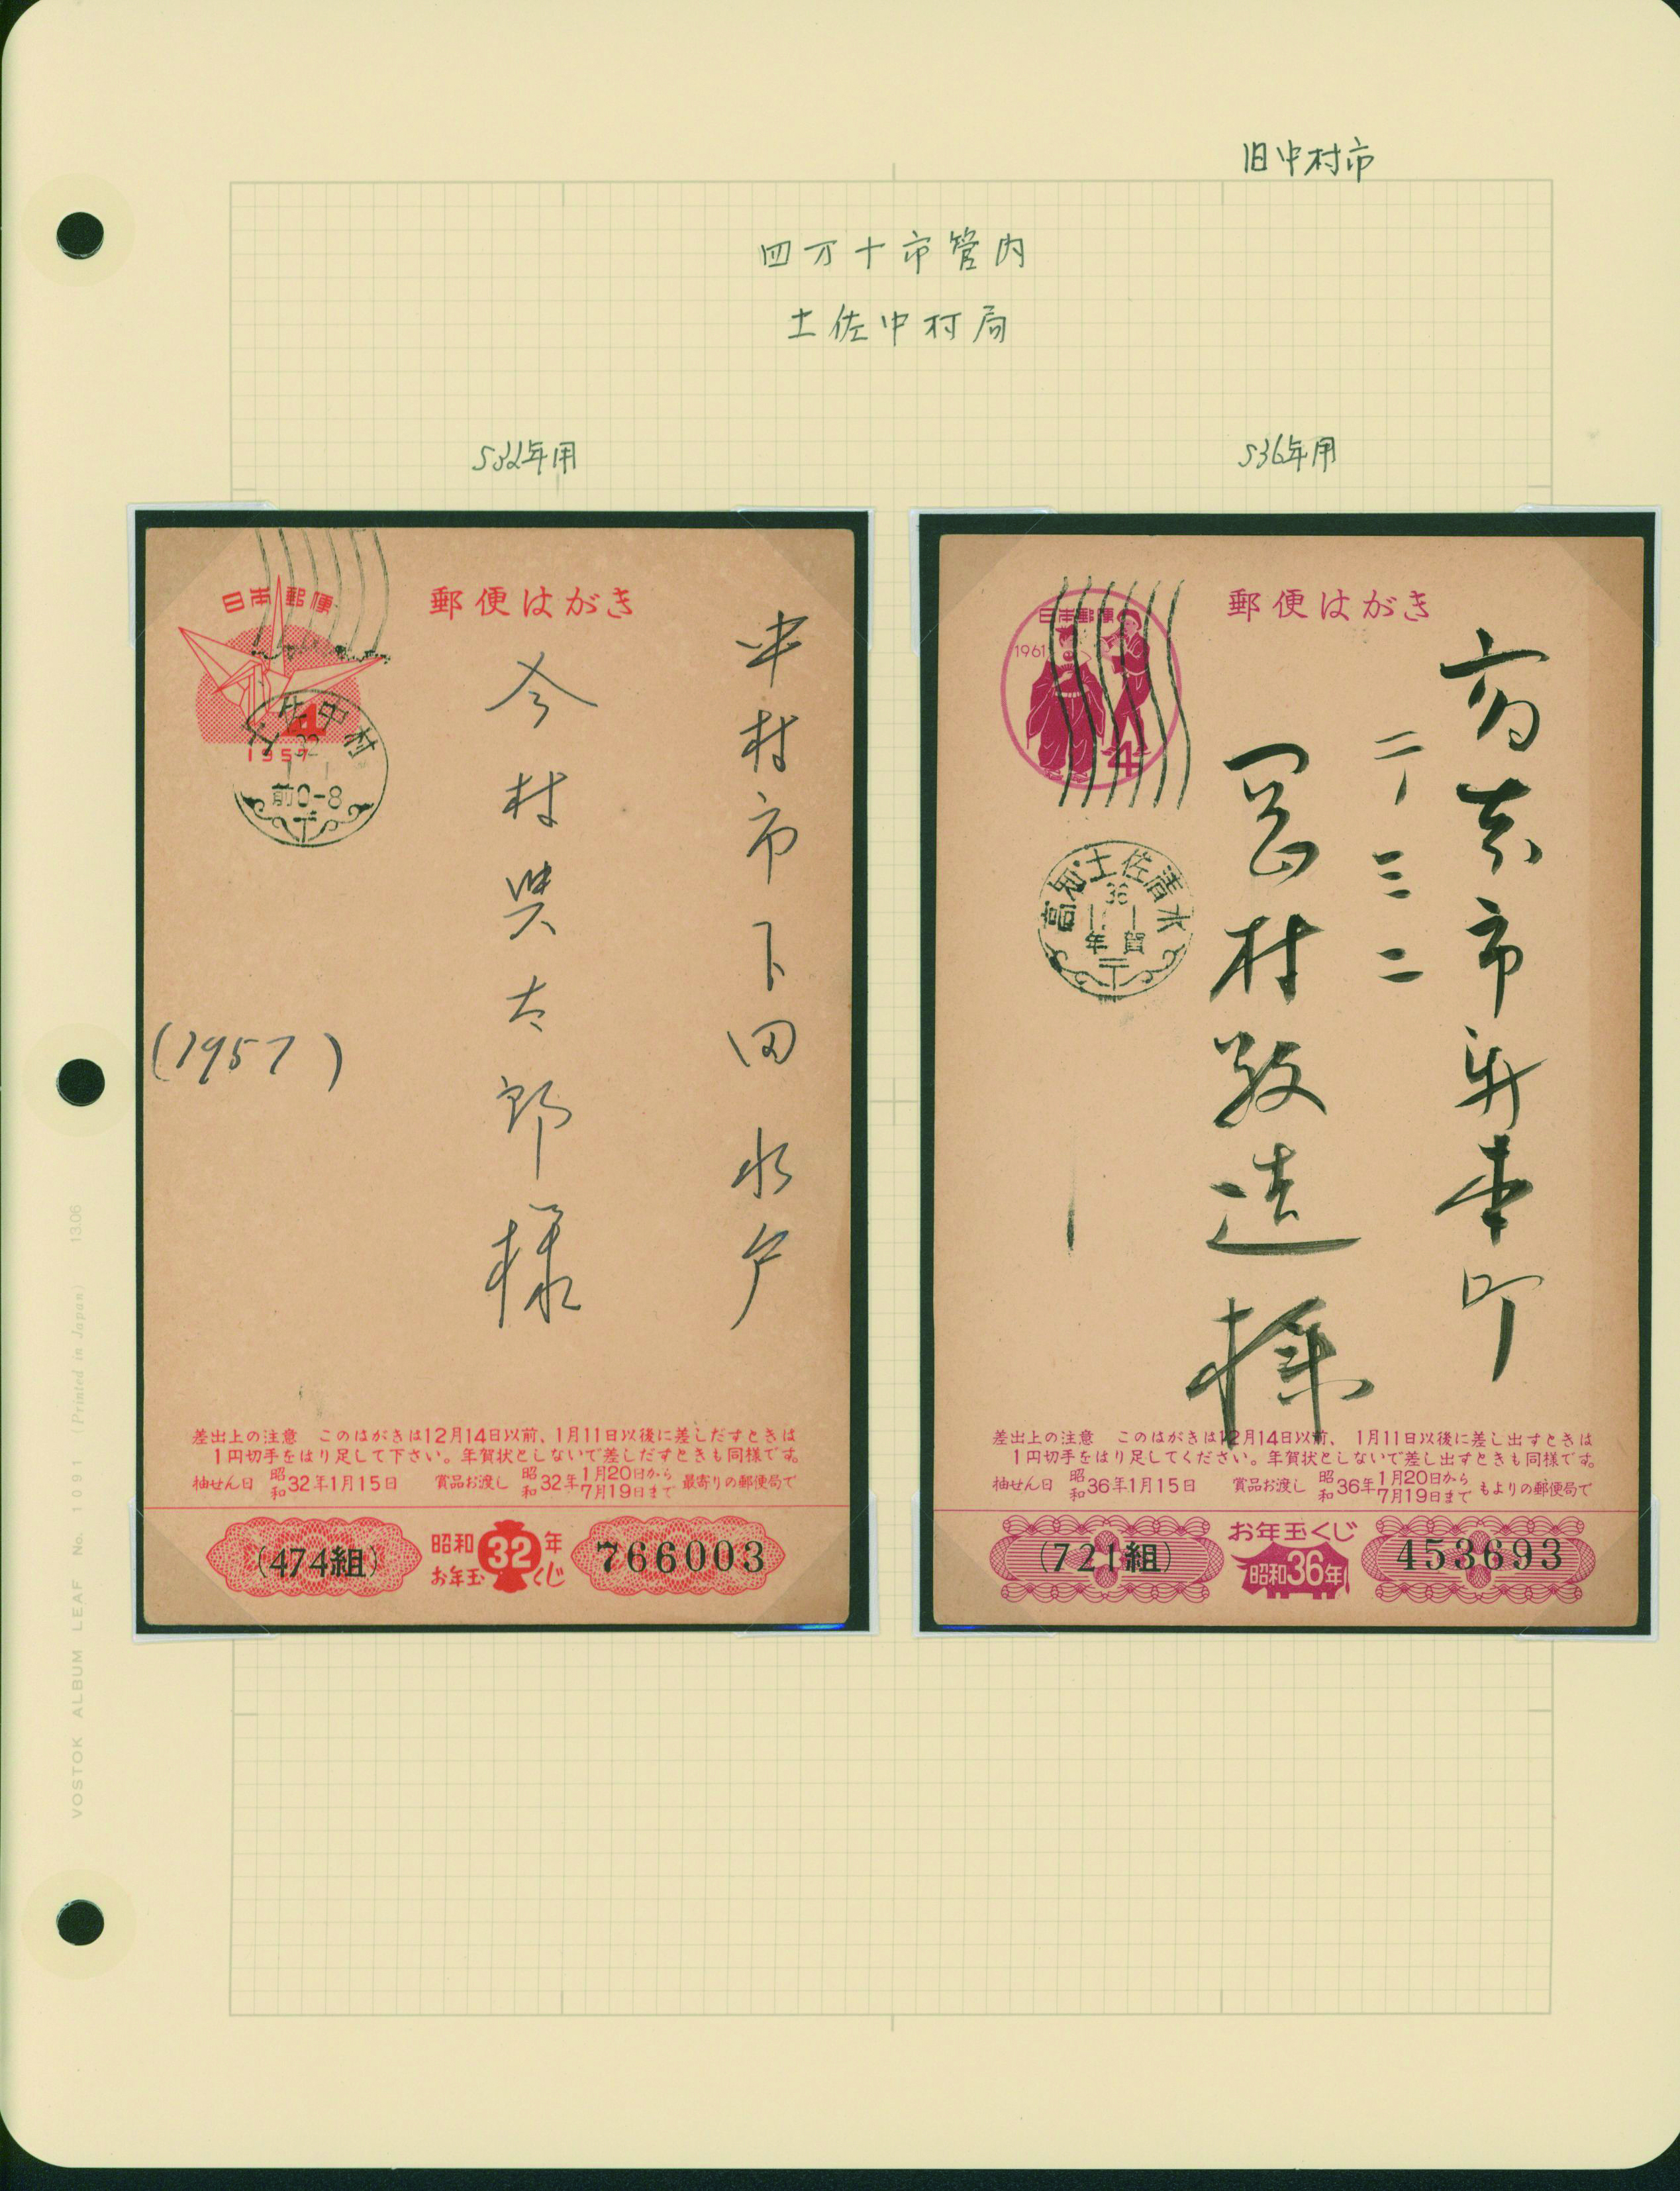 旧中村市
四万十市管内
土佐中村局
S32年用
S36年用
日本郵便
郵便はがき
4
1957
土佐中村
32
1.1
前0-8
中村市下田水戸
今村
太郎様
(1957)
差出上の注意 このはがきは12月14日以前、1月11日以後に差しだすときは
1円切手をはり足して下さい。年賀状としないで差しだすときも同様です。
抽せん日 昭和32年1月15日 賞品お渡し 昭和32年1月20日から7月19日まで 最寄りの郵便局で
(474組)
昭和32年
お年玉くじ
766003
日本郵便
1961
4
郵便はがき
高知・土佐清水
36
1.1
年賀
市新本町
二ノ三二
岡村
造様
差出上の注意 このはがきは12月14日以前、1月11日以後に差し出すときは
1円切手をはり足してください。年賀状としないで差し出すときも同様です。
抽せん日 昭和36年1月15日 賞品お渡し 昭和36年1月20日から7月19日まで もよりの郵便局で
(721組)
お年玉くじ
昭和36年
453693
VOSTOK ALBUM LEAF No. 1091 (Printed in Japan) 13.06